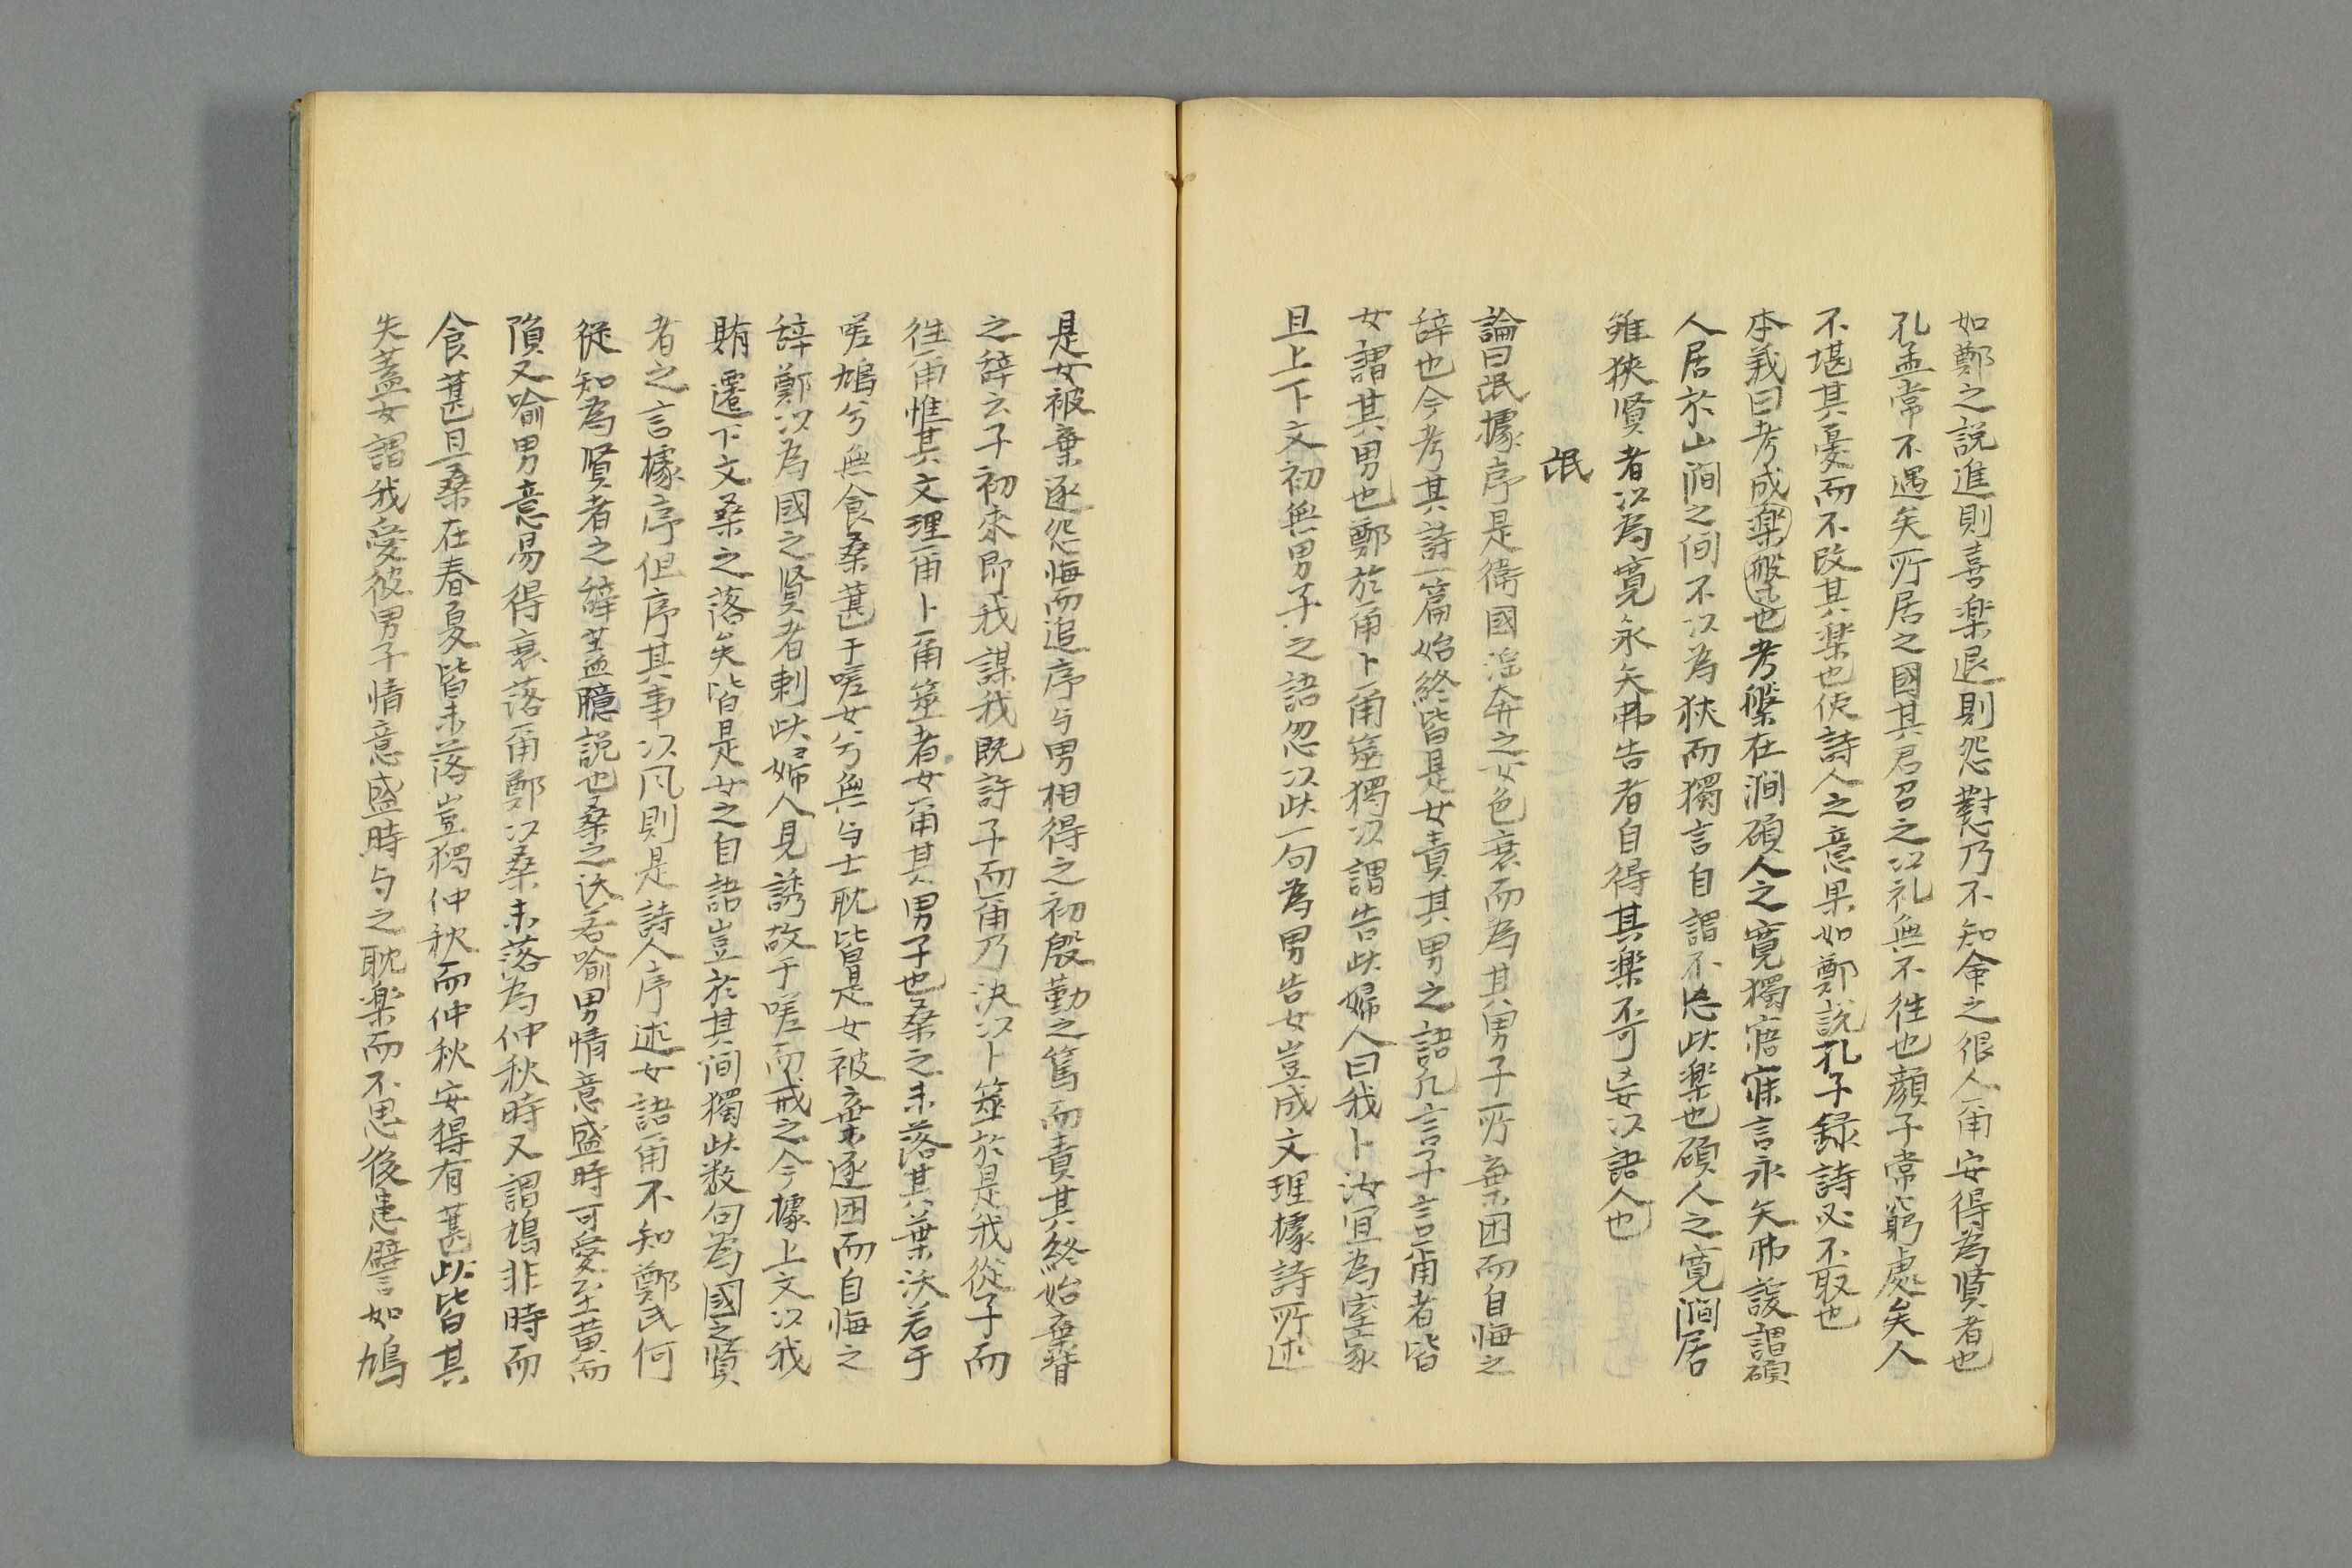 如鄭之説進則喜楽退則怨懟乃不知命之佷人甭安得為賢者也
孔孟常不遇矣所居之國其君召之以礼無不徃也顔子常窮處矣人
不堪其憂而不改其楽也使詩人之意果如鄭説孔子録詩必不取也
本義曰考成楽槃也考槃在澗碩人之寛獨寤寐言永矢弗諼謂碩
人居於山澗之间不以為狹而獨言自謂不忘此楽也碩人之寛澗居
雖狹賢者以為寛永矢弗告者自得其楽不可妄以語人也
氓
論曰氓據序是衛國淫奔之女色衰而為其男子所棄困而自悔之
辞也今考其詩一篇始終皆是女責其男之語凢言子言甭者皆
女謂其男也鄭於甭卜甭筮獨以謂告此婦人曰我卜汝宜為室家
且上下文初無男子之語忽以此一句為男告女豈成文理據詩所述
是女被棄逐怨悔而追序与男相得之初殷勤之篤而責其終始棄背
之辞云子初來即我謀我既許子而甭乃決以卜筮於是我從子而
徃甭惟其文理甭卜甭筮者女甭其男子也桑之未落其葉沃若于
嗟鳩兮無食桑葚于嗟女兮無与士耽皆是女被棄逐困而自悔之
辞鄭以為國之賢者刺此婦人見誘故于嗟而戒之今據上文以我
賄遷下文桑之落矣皆是女之自語豈於其间獨此数句為國之賢
者之言據序但序其事以风則是詩人序述女語甭不知鄭氏何
従知為賢者之辞盖臆説也桑之沃若喻男情意盛時可愛至黄而
隕又喻男意易得衰落甭鄭以桑未落為仲秋時又謂鳩非時而
食葚且桑在春夏皆未落豈獨仲秋而仲秋安得有葚此皆其
失蓋女謂我愛彼男子情意盛時与之耽楽而不思後患譬如鳩